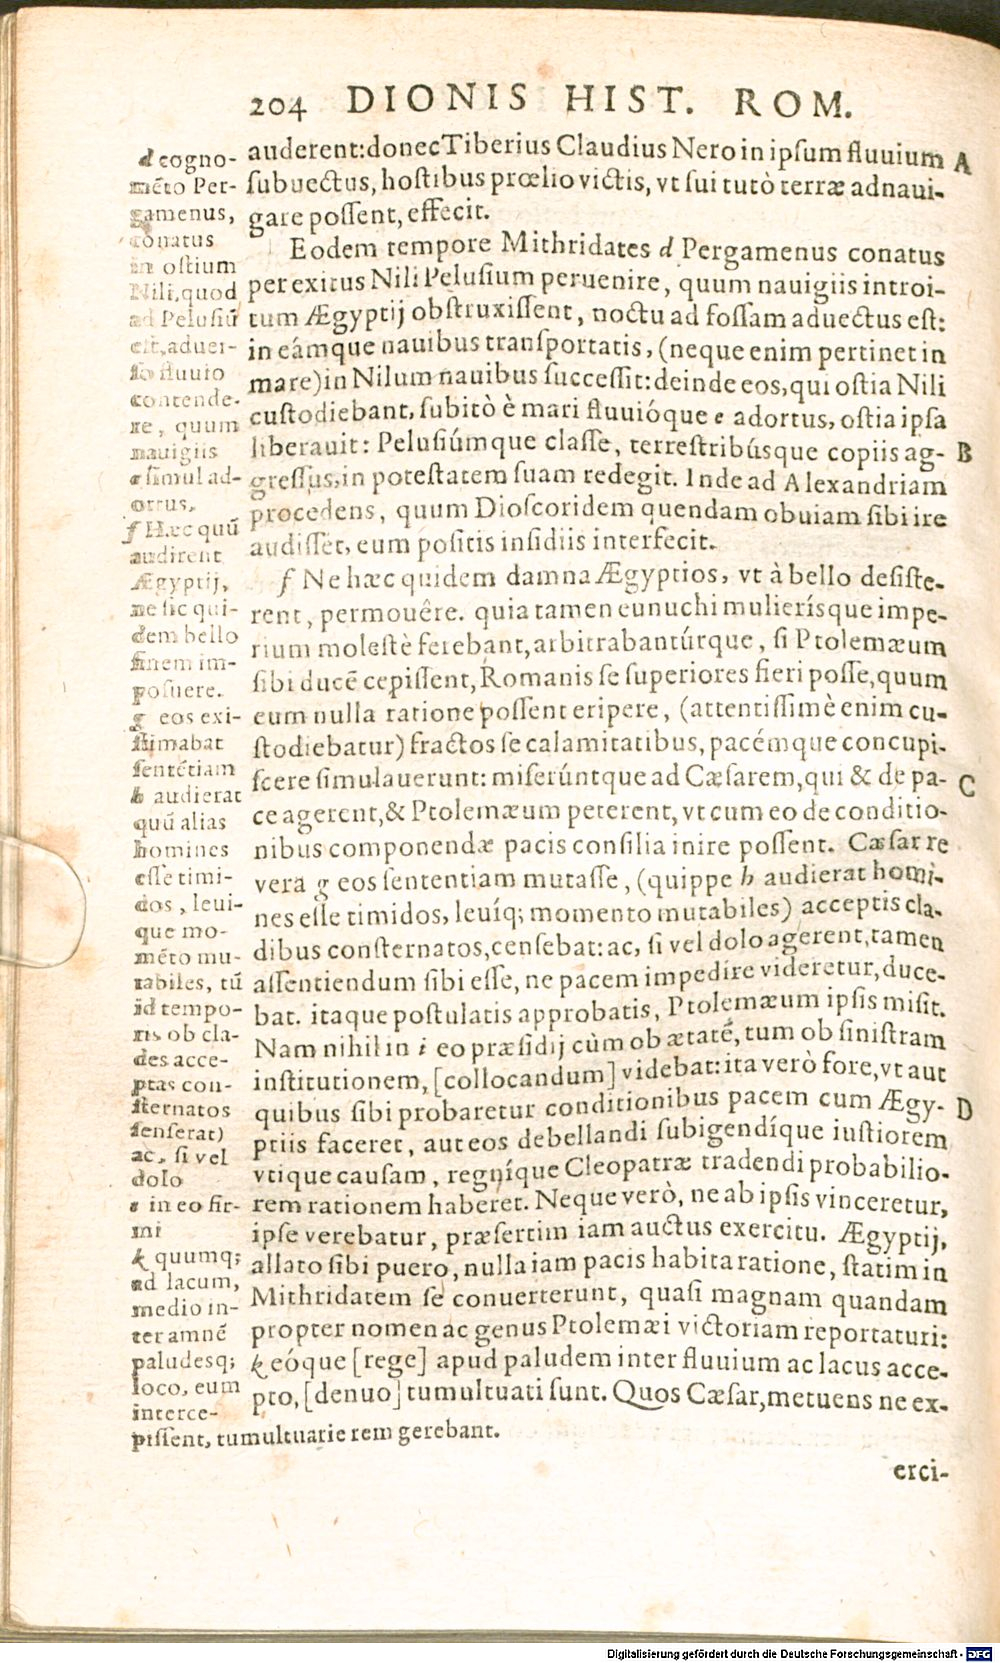 204 DIONIS HIST. ROM.
auderent: donec Tiberius Claudius Nero in ipsum fluuium A
subuectus, hostibus prœlio victis, vt sui tutò terræ adnaui-
gare possent, effecit.
Eodem tempore Mithridates d Pergamenus conatus
per exitus Nili Pelusium peruenire, quum nauigiis introi-
tum Ægyptij obstruxissent, noctu ad fossam aduectus est:
in eámque nauibus transportatis, (neque enim pertinet in
mare) in Nilum nauibus successit: deinde eos, qui ostia Nili
custodiebant, subitò è mari fluuióque e adortus, ostia ipsa
liberauit: Pelusiúmque classe, terrestribúsque copiis ag- B
gressus, in potestatem suam redegit. Inde ad Alexandriam
procedens, quum Dioscoridem quendam obuiam sibi ire
audisset, eum positis insidiis interfecit.
f Ne hæc quidem damna Ægyptios, vt à bello desiste-
rent, permouêre. quia tamen eunuchi mulierísque impe-
rium molestè ferebant, arbitrabantúrque, si Ptolemæum
sibi ducē cepissent, Romanis se superiores fieri posse, quum
eum nulla ratione possent eripere, (attentissimè enim cu-
stodiebatur) fractos se calamitatibus, pacémque concupi-
scere simulauerunt: miserúntque ad Cæsarem, qui & de pa- C
ce agerent, & Ptolemæum peterent, vt cum eo de conditio-
nibus componendæ pacis consilia inire possent. Cæsar re
vera g eos sententiam mutasse, (quippe h audierat homi-
nes esse timidos, leuíq; momento mutabiles) acceptis cla-
dibus consternatos, censebat: ac, si vel dolo agerent, tamen
assentiendum sibi esse, ne pacem impedire videretur, duce-
bat. itaque postulatis approbatis, Ptolemæum ipsis misit.
Nam nihil in i eo præsidij cùm ob ætatē, tum ob sinistram
institutionem, [collocandum] videbat: ita verò fore, vt aut
quibus sibi probaretur conditionibus pacem cum Ægy- D
ptiis faceret, aut eos debellandi subigendíque iustiorem
vtique causam, regníque Cleopatræ tradendi probabilio-
rem rationem haberet. Neque verò, ne ab ipsis vinceretur,
ipse verebatur, præsertim iam auctus exercitu. Ægyptij,
allato sibi puero, nulla iam pacis habita ratione, statim in
Mithridatem se conuerterunt, quasi magnam quandam
propter nomen ac genus Ptolemæi victoriam reportaturi:
k eóque [rege] apud paludem inter fluuium ac lacus acce-
pto, [denuo] tumultuati sunt. Quos Cæsar, metuens ne ex-
erci-
d cogno-
mēto Per-
gamenus,
conatus
in ostium
Nili, quod
ad Pelusiū
est, aduer-
so fluuio
contende-
re, quum
nauigiis
e simul ad-
ortus,
f Hæc quū
audirent
Ægyptij,
ne sic qui-
dem bello
finem im-
posuere.
g eos exi-
stimabat
sentētiam
h audierat
quū alias
homines
esse timi-
dos, leui-
que mo-
mēto mu-
tabiles, tū
id tempo-
ris ob cla-
des acce-
ptas con-
sternatos
senserat)
ac, si vel
dolo
i in eo fir-
mi
k quumq;
ad lacum,
medio in-
ter amnē
paludesq;
loco, eum
interce-
pissent, tumultuarie rem gerebant.
Digitalisierung gefördert durch die Deutsche Forschungsgemeinschaft - DFG